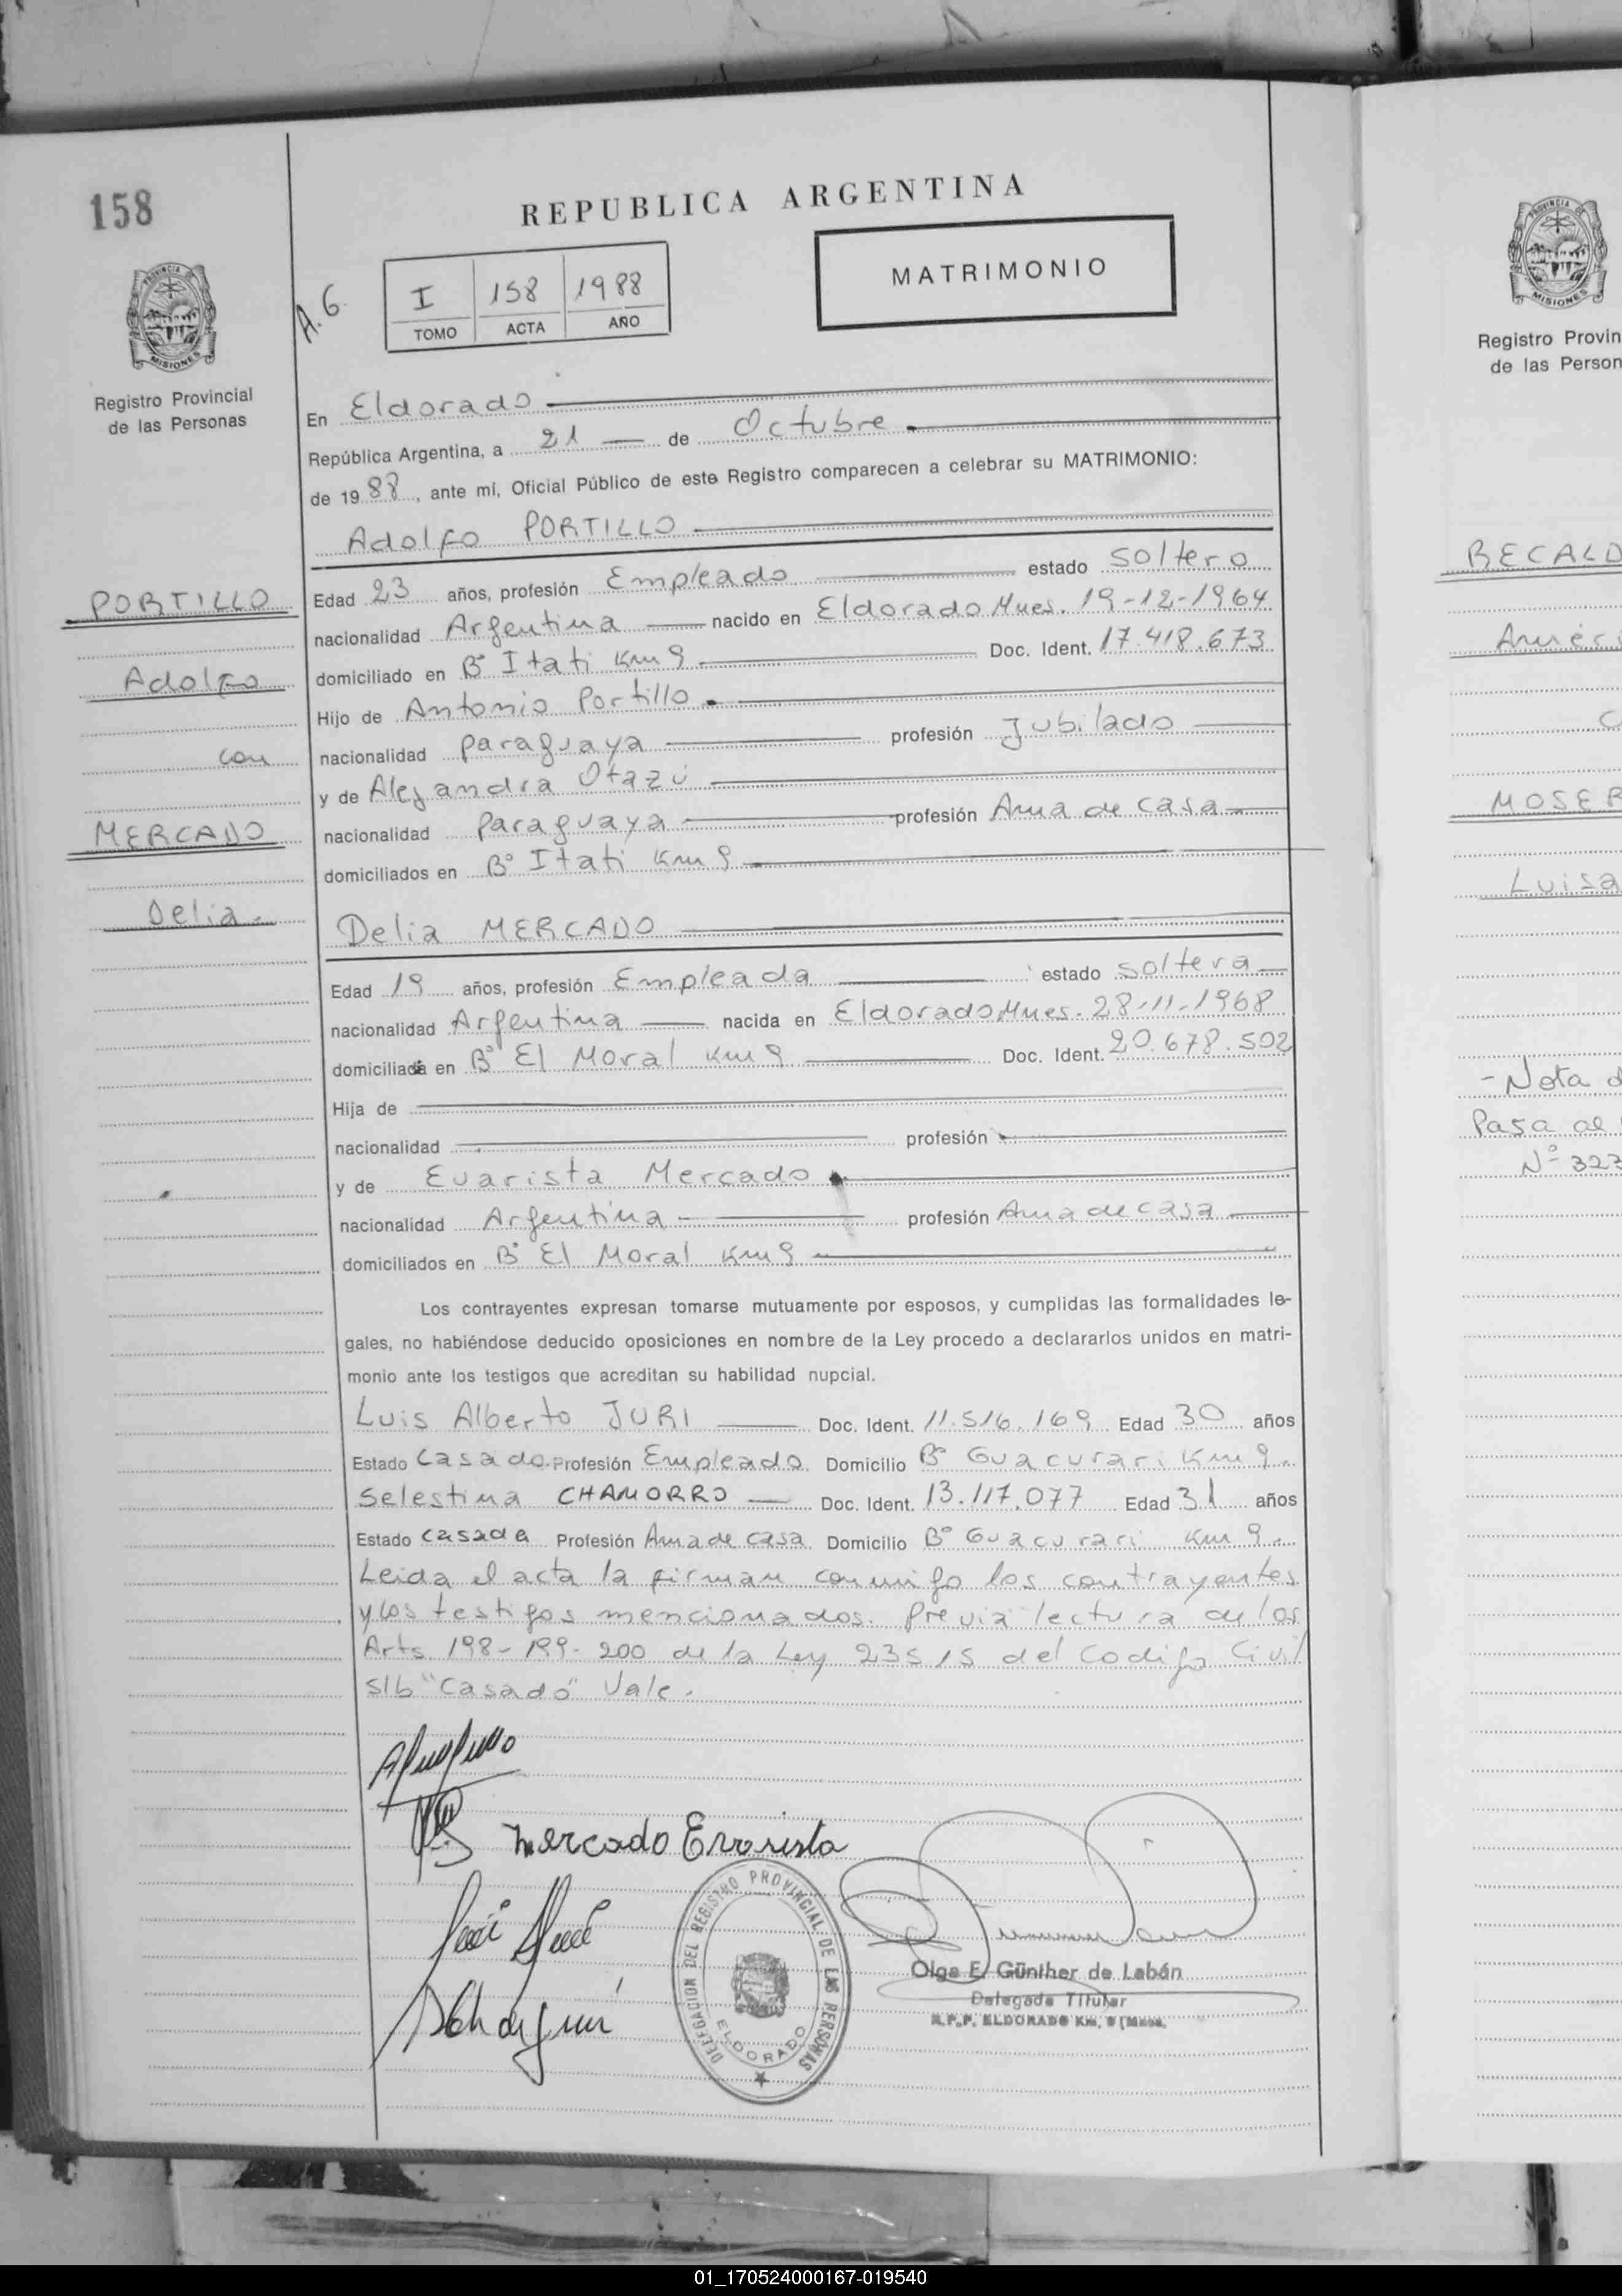 158
REPUBLICA ARGENTINA
A.G.
I 158 1988
TOMO ACTA AÑO
MATRIMONIO
PROVINCIA DE
MISIONES
Registro Provincial
de las Personas
En Eldorado
República Argentina, a 21 de Octubre
de 1988, ante mi, Oficial Público de este Registro comparecen a celebrar su MATRIMONIO:
Adolfo PORTILLO
PORTILLO
Adolfo
con
MERCADO
Delia.
Edad 23 años, profesión Empleado estado soltero
nacionalidad Argentina nacido en Eldorado Mnes. 19-12-1964
domiciliado en B° Itati Km 9 Doc. Ident. 17.418.673
Hijo de Antonio Portillo
nacionalidad paraguaya profesión Jubilado
y de Alejandra Otazú
nacionalidad paraguaya profesión Ama de casa
domiciliados en B° Itati Km 9
Delia MERCADO
Edad 19 años, profesión Empleada estado soltera
nacionalidad Argentina nacida en Eldorado Mnes. 28-11-1968
domiciliada en B° El Moral Km 9 Doc. Ident. 20.678.502
Hija de
nacionalidad profesión
y de Evarista Mercado
nacionalidad Argentina profesión Ama de casa
domiciliados en B° El Moral Km 9
Los contrayentes expresan tomarse mutuamente por esposos, y cumplidas las formalidades le-
gales, no habiéndose deducido oposiciones en nombre de la Ley procedo a declararlos unidos en matri-
monio ante los testigos que acreditan su habilidad nupcial.
Luis Alberto JURI Doc. Ident. 11.516.169 Edad 30 años
Estado Casado Profesión Empleado Domicilio B° Guacurari Km 9.
Selestina CHAMORRO Doc. Ident. 13.117.077 Edad 31 años
Estado casada Profesión Ama de casa Domicilio B° Guacurari Km 9.
Leida el acta la firman conmigo los contrayentes
y los testigos mencionados. Previa lectura de los
Arts 198-199-200 de la Ley 23515 del Codigo Civil
s/b "Casado" Vale.
Mercado Evarista
DELEGACION DEL REGISTRO PROVINCIAL DE LAS PERSONAS
ELDORADO
Olga E. Günther de Labán
Delegada Titular
R.P.P. ELDORADO Km. 9 (Mnes.
PROVINCIA DE
MISIONES
Registro Provin
de las Person
RECALD
Améri
C
MOSER
Luisa
-Nota d
Pasa al
N° 323
01_170524000167-019540